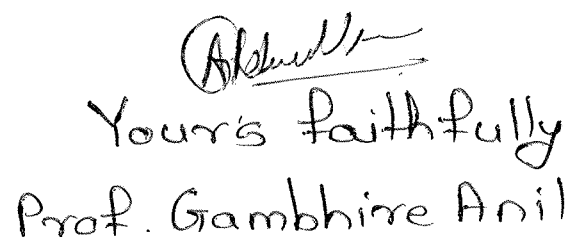 Your's faithfully
Prof. Gambhire Anil